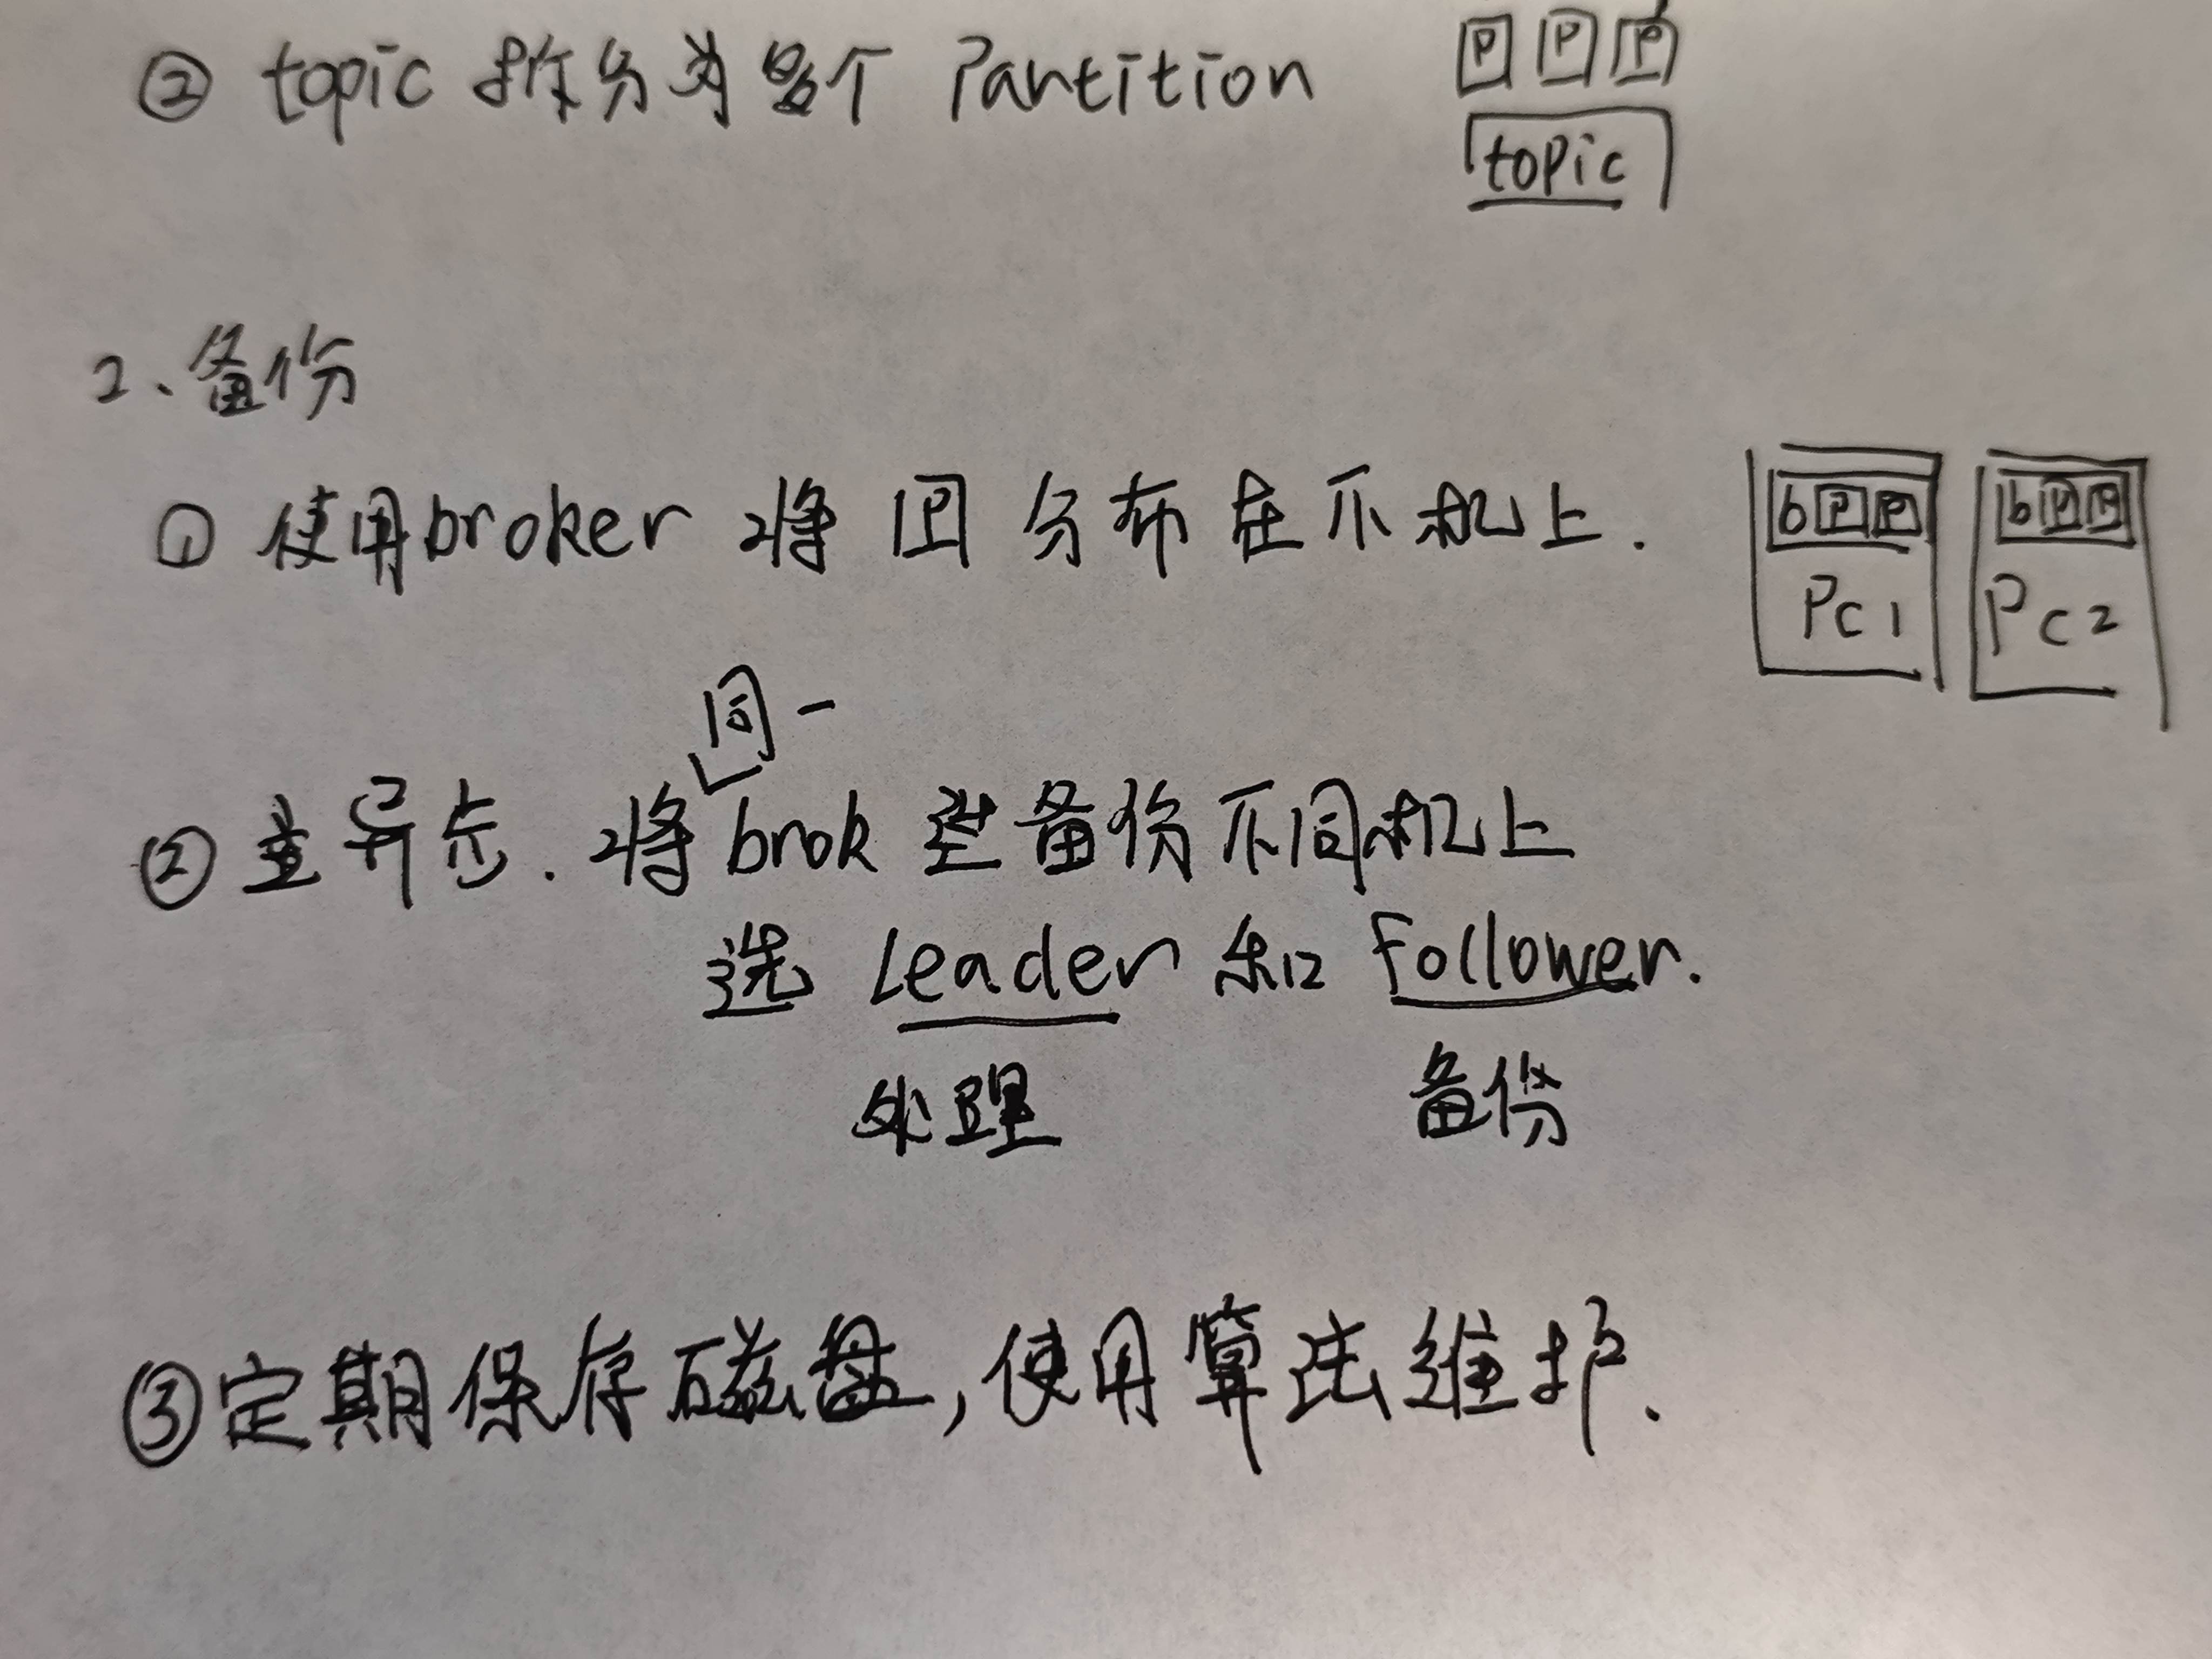 ② topic 拆分为多个 Partition
P P P
topic
2、备份
① 使用broker 将 P 分布在不机上.
b P P
PC1
b P P
PC2
同一
② 异步. 将 brok 备份不同机上
选 Leader 和 Follower.
处理 备份
③ 定期保存磁盘,使用算法维护.